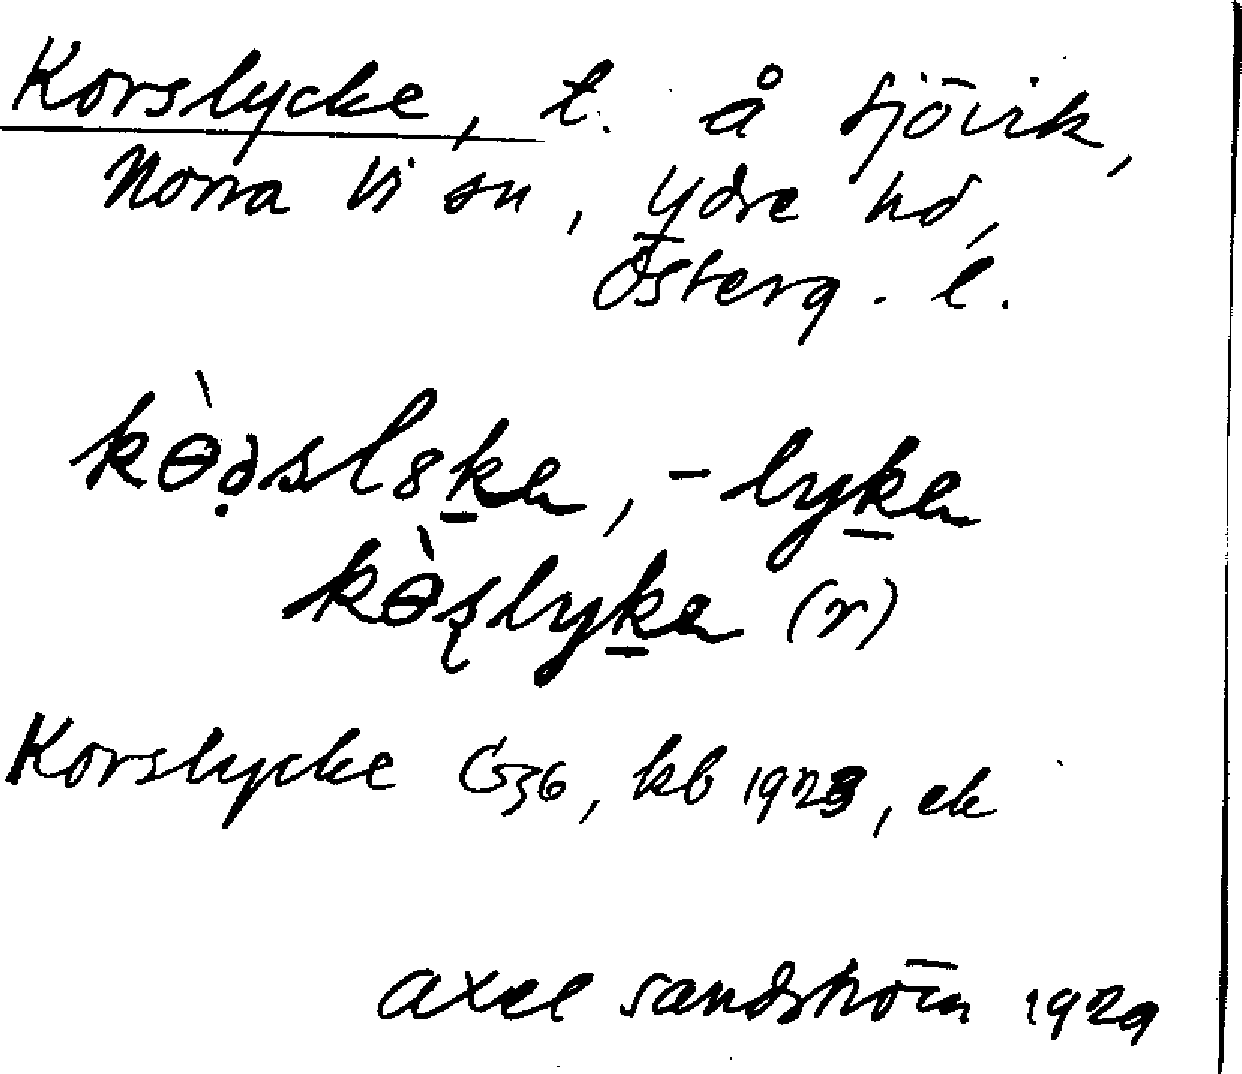 Korslycke, t. å Sjövik,
Norra Vi sn, Ydre hd,
Österg. l.
kɵ̀ꝺ̣sl8ka, -lyka
kɵ̀ʂlyka (r)
Korslycke G36, kb 1923, ek
Axel Sandström 1929